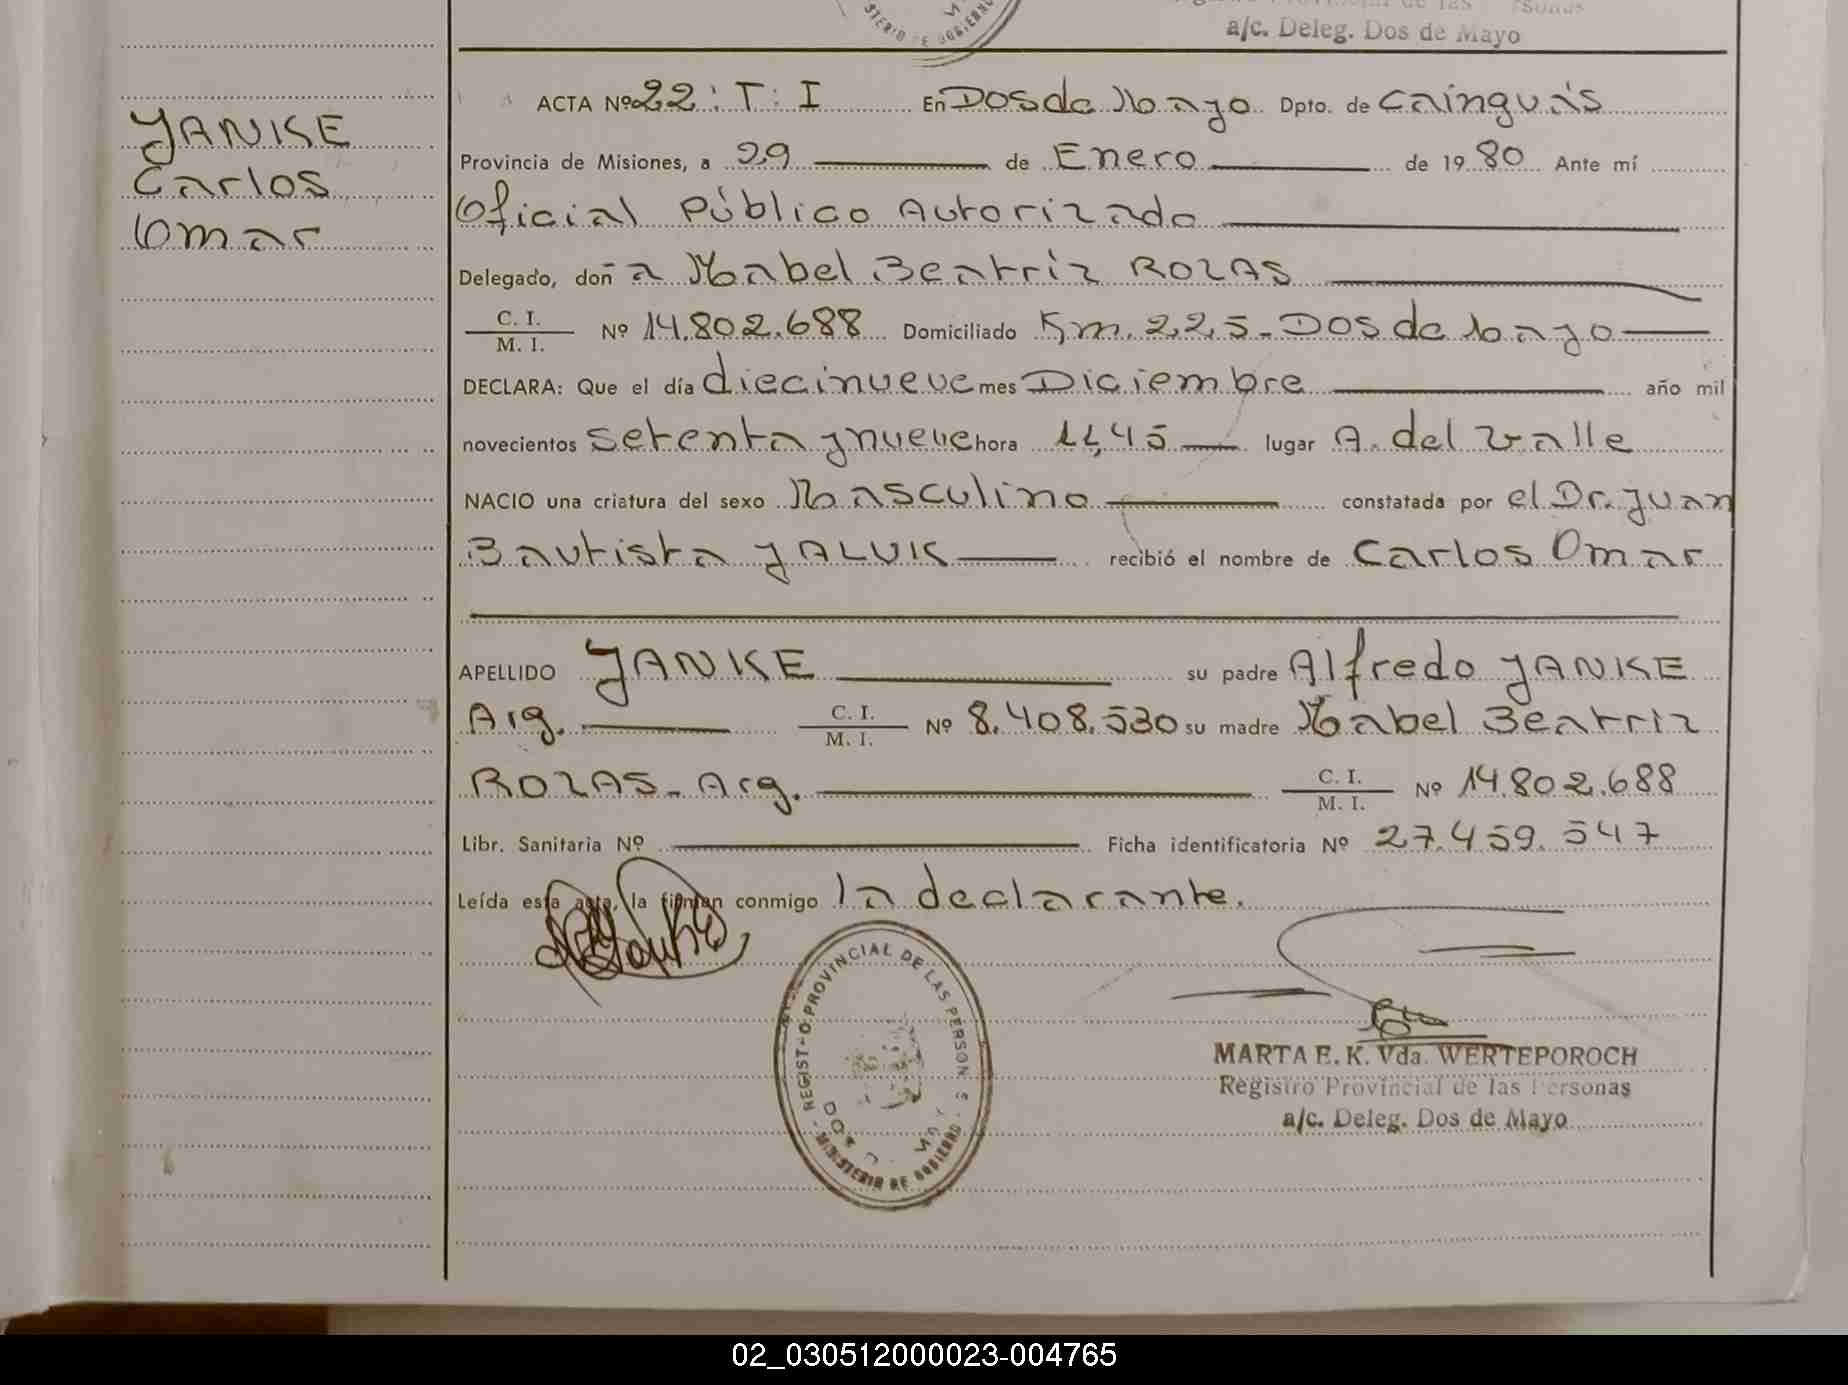 a/c. Deleg. Dos de Mayo
YANKE
Carlos
Omar
ACTA Nº 22: T: I En Dos de Mayo Dpto. de Cainguás
Provincia de Misiones, a 29 de Enero de 1980 Ante mí
Oficial Público Autorizado
Delegado, doña Mabel Beatriz ROZAS
C. I. / M. I. Nº 14.802.688 Domiciliado Km. 225 - Dos de Mayo
DECLARA: Que el día diecinueve mes Diciembre año mil
novecientos setenta y nueve hora 11,45 lugar A. del Valle
NACIO una criatura del sexo Masculino constatada por el Dr. Juan
Bautista YALUK recibió el nombre de Carlos Omar
APELLIDO YANKE su padre Alfredo YANKE
Arg. C. I. / M. I. Nº 8.408.530 su madre Mabel Beatriz
ROZAS - Arg. C. I. / M. I. Nº 14.802.688
Libr. Sanitaria Nº Ficha identificatoria Nº 27.459.547
Leída esta acta, la firman conmigo la declarante.
REGISTRO PROVINCIAL DE LAS PERSONAS
MINISTERIO DE GOBIERNO
MARTA E. K. Vda. WERTEPOROCH
Registro Provincial de las Personas
a/c. Deleg. Dos de Mayo
02_030512000023-004765